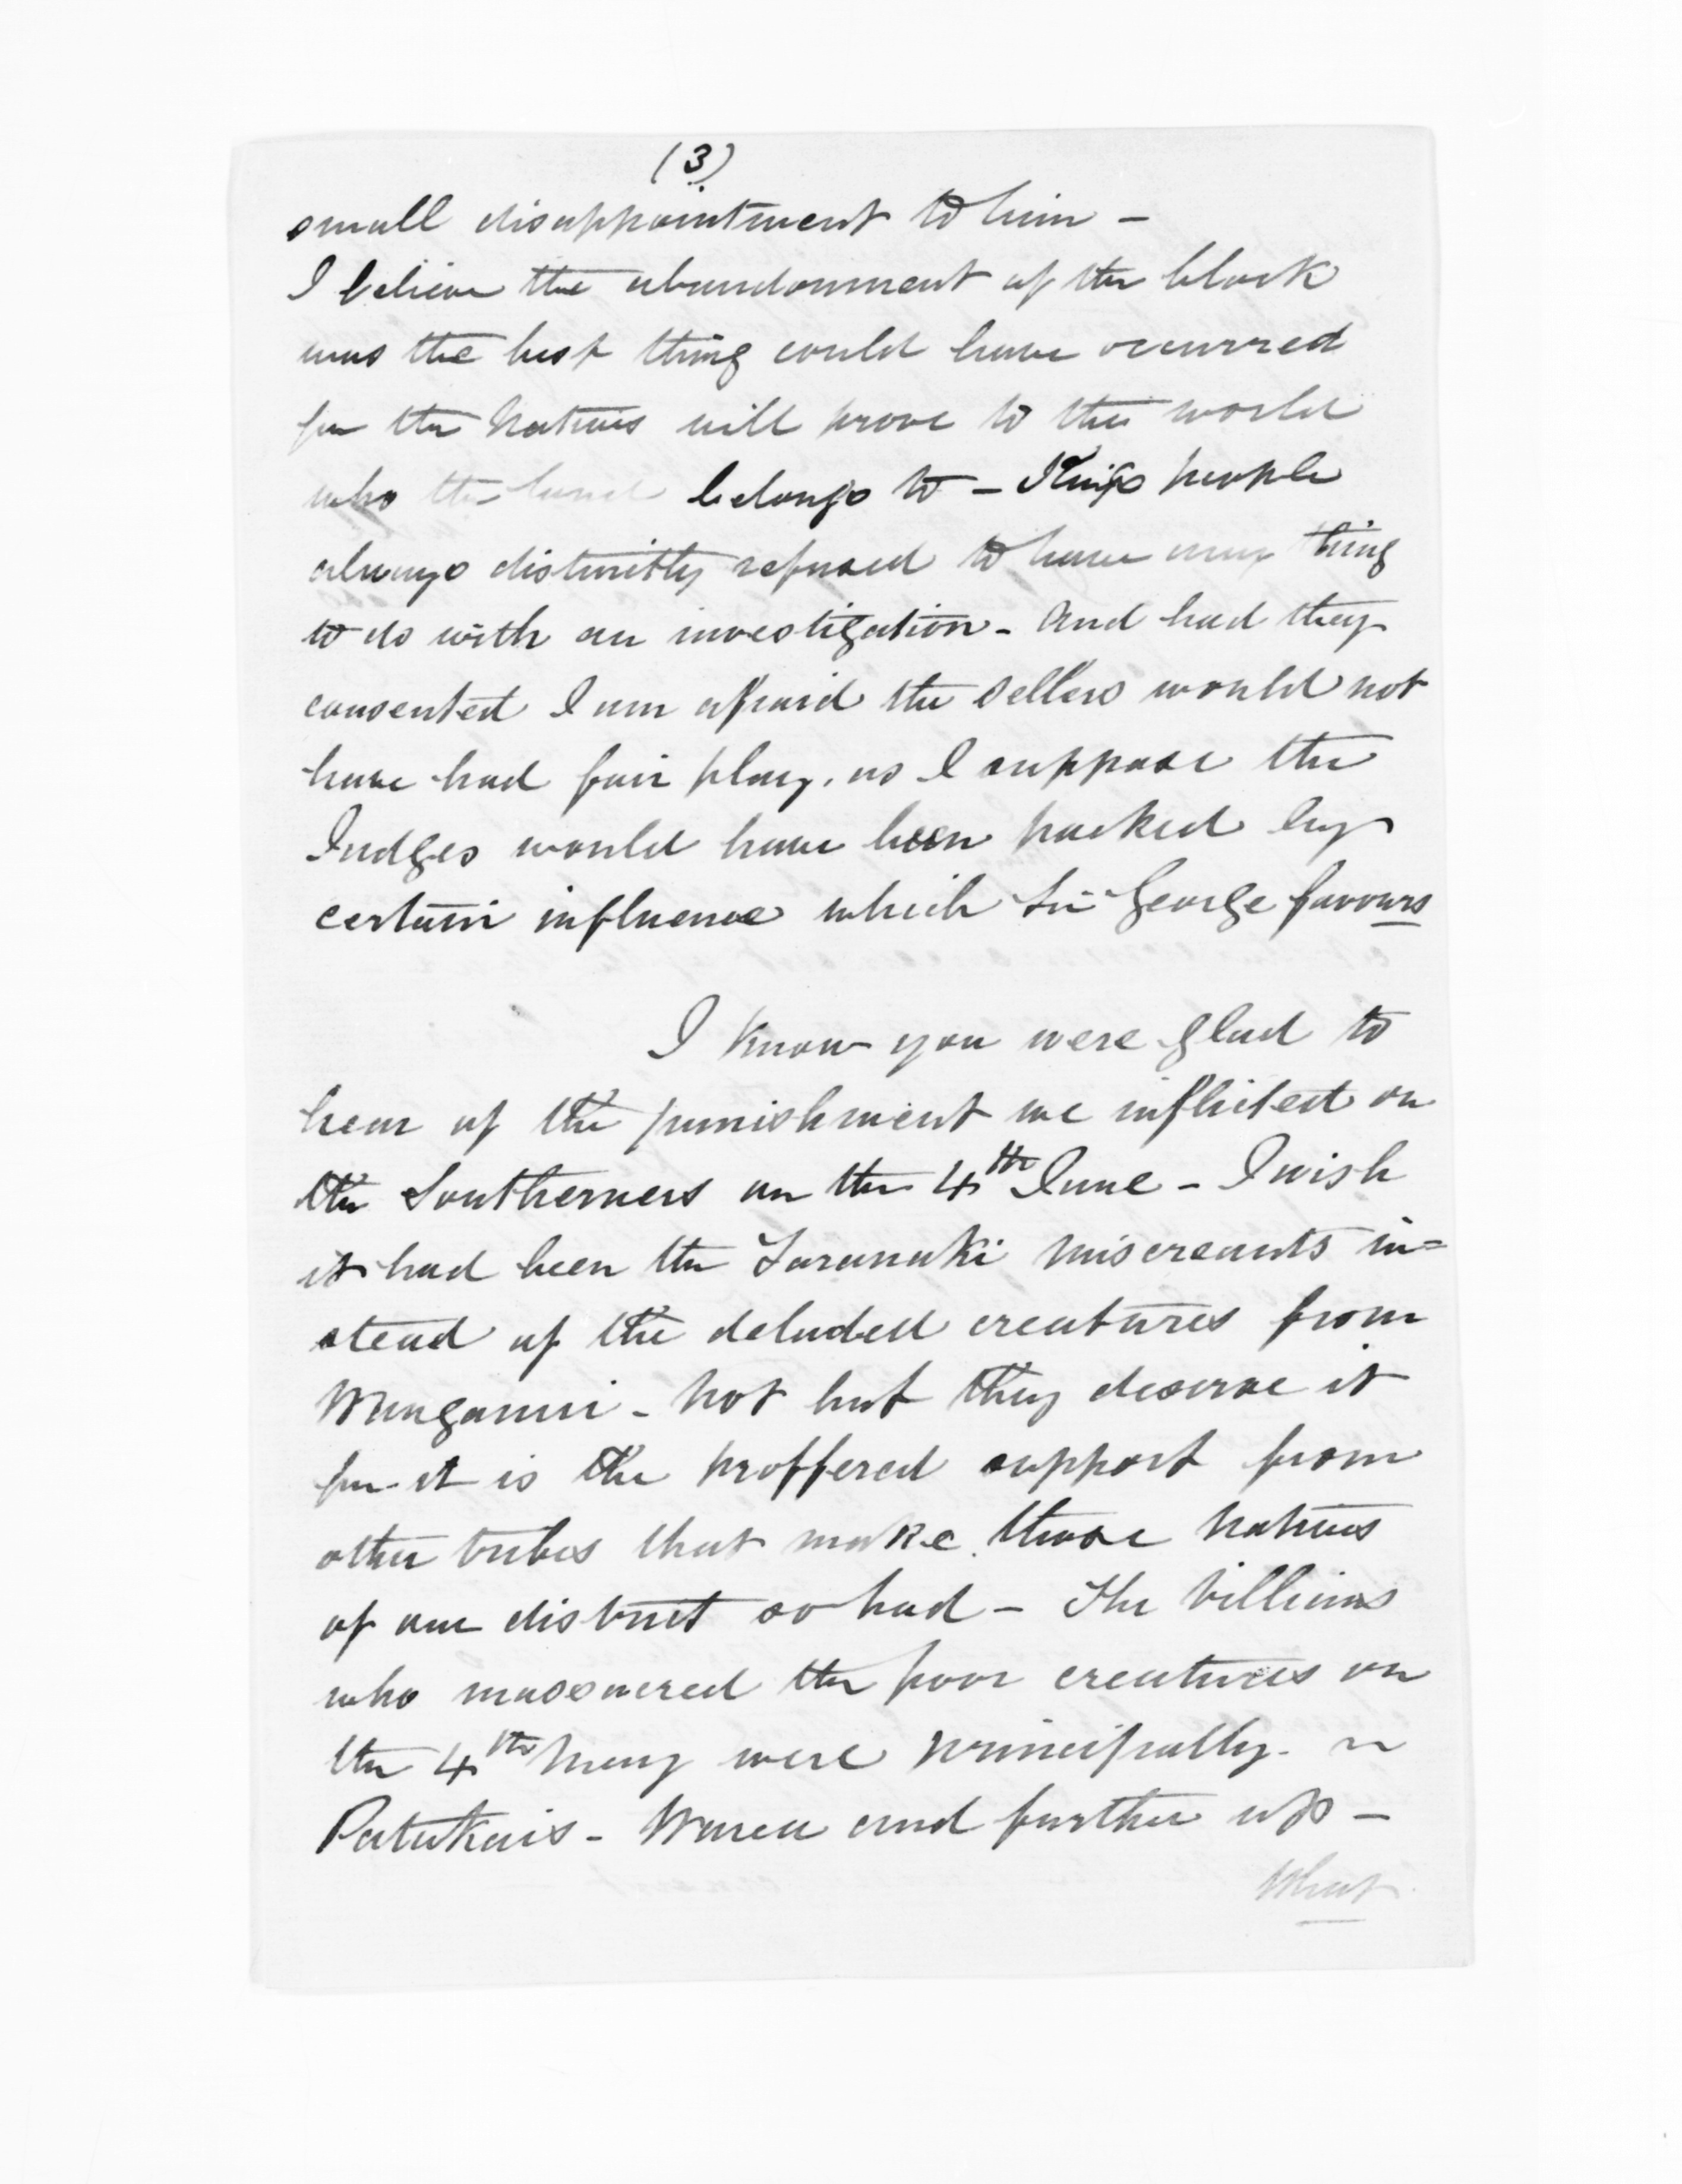 (3)
small disappointment to him -
I believe the abandonment of the block
was the best thing could have occurred
for the Natives will prove to the world
who the land belongs to - Kings people
always distinctly refused to have any thing
to do with an investigation - and had they
consented I am afraid the sellers would not
have had fair play, as I suppose the
Judges would have been packed by
certain influence which Sir George favours
I know you were glad to
hear of the punishment we inflicted on
the Southerners on the 4th June - I wish
it had been the Taranaki miscreants in=
stead of the deluded creatures from
Wanganui - not but they deserve it
for it is the proffered support from
other tribes that make those natives
of our district so bad - The Villians
who massacred the poor creatures on
the 4th May were principally
Patukais - Warea and further up -
What